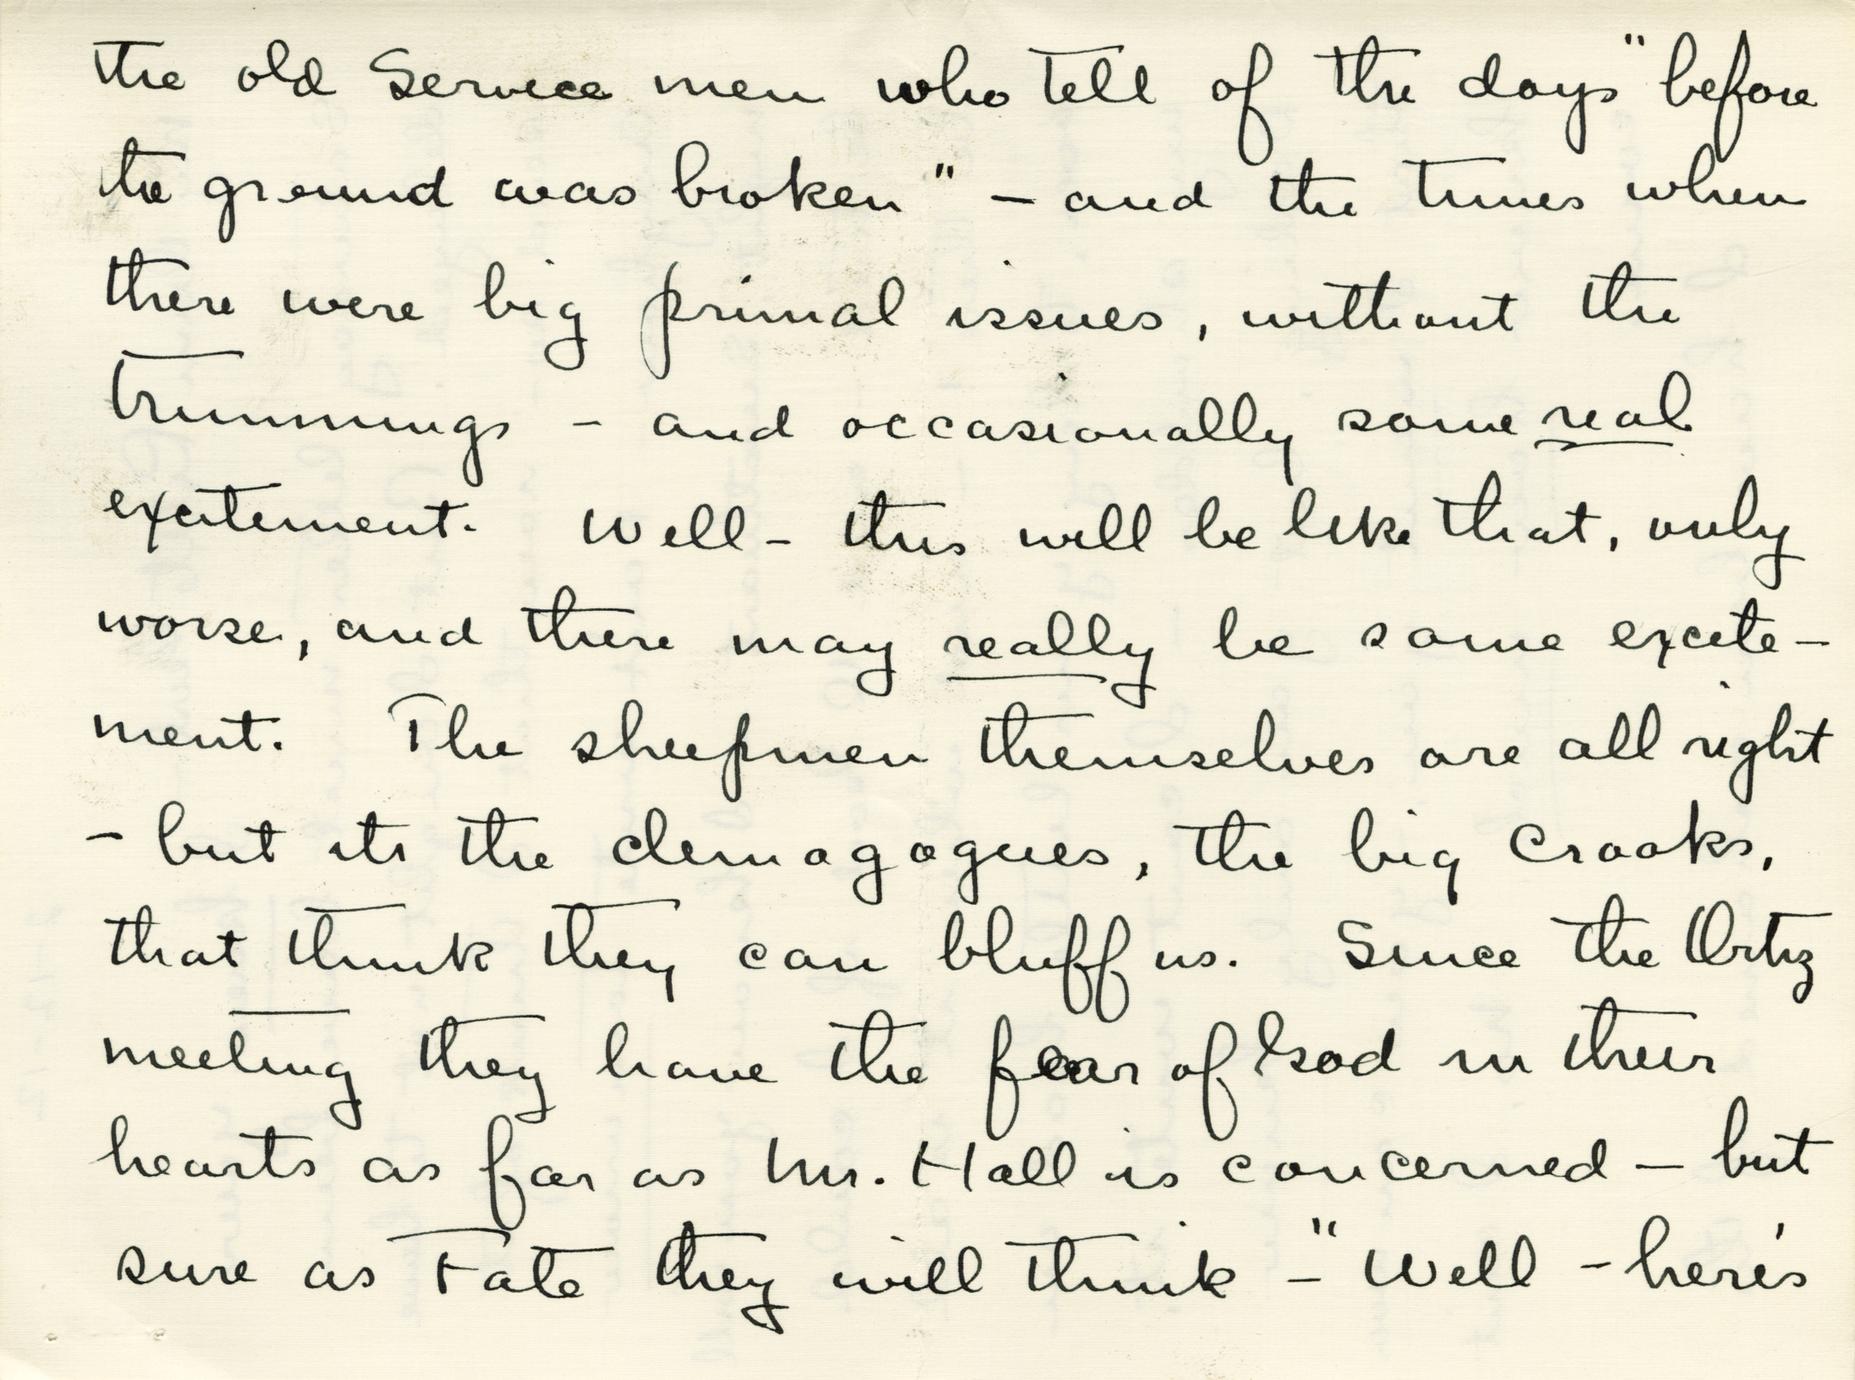 the old Service men who tell of the days "before
the ground was broken" – and the times when
there were big primal issues, without the
trimmings – and occasionally some real
excitement. Well – this will be like that, only
worse, and there may really be some excite-
ment. The sheepmen themselves are all right
– but its the demagogues, the big crooks,
that think they can bluff us. Since the Ortiz
meeting they have the fear of God in their
hearts as far as Mr. Hall is concerned – but
sure as Fate they will think – "Well – here's